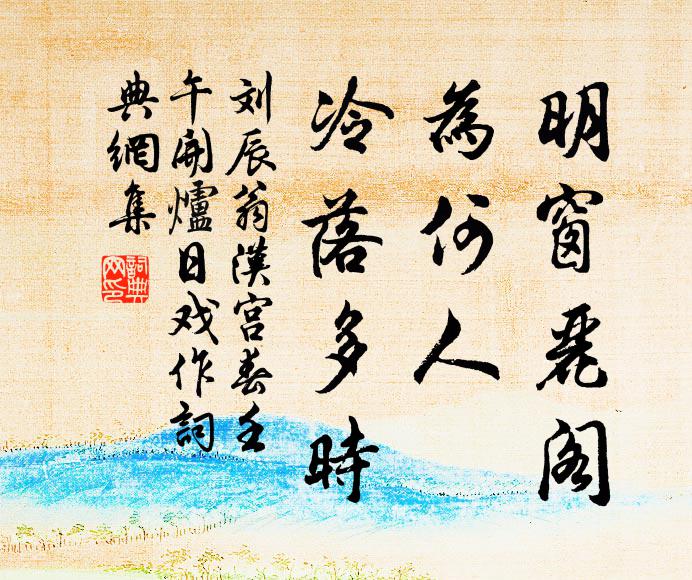 明窗麗阁
為何人
冷落多時
刘辰翁漢宫春壬
午開爐日戏作詞
典網集
詞典網印